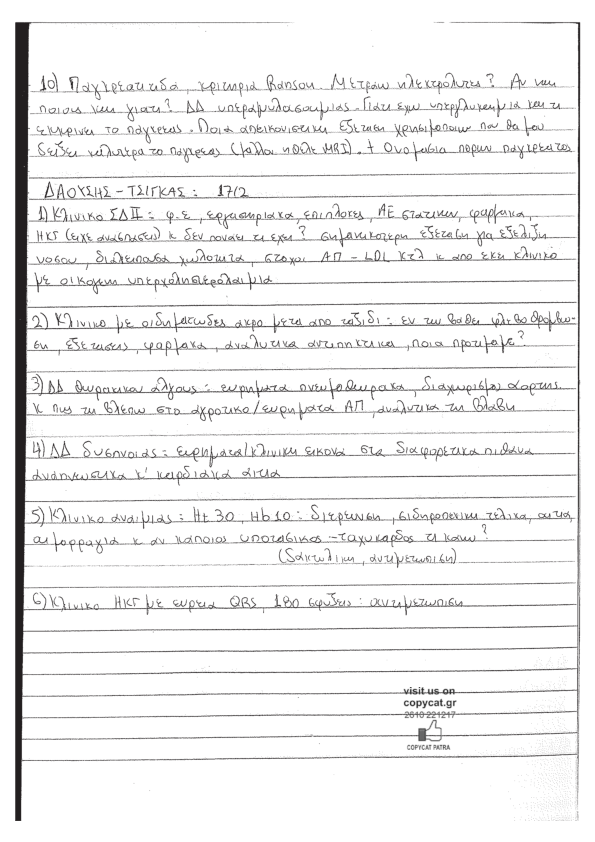 10) Παγκρεατιτιδα, κριτηρια Ranson. Μετραω ηλεκτρολυτες? Αν ναι
ποιους και γιατι? ΔΔ υπεραμυλασαιμιας. Γιατι εχω υπεργλυκαιμια και τι
εκκρινει το παγκρεας. Ποια απεικονιστικη εξεταση χρησιμοποιω που θα μου
δειξει καλυτερα το παγκρεας (μαλλον ηθελε MRI). + Ονομασια πορων παγκρεατος
ΔΑΟΥΣΗΣ - ΤΣΙΓΚΑΣ : 17/2
1) Κλινικο ΣΔΙΙ : φ.ε, εργαστηριακα, επιπλοκες, ΑΕ στατινων, φαρμακα,
ΗΚΓ (ειχε ανασπασεις) κ δεν ποναει τι εχει? σημαντικοτερη εξεταση για εξελιξη
νοσου, διαλειπουσα χωλοτητα, στοχοι ΑΠ - LDL κτλ κ απο εκει κλινικο
με οικογενη υπερχοληστερολαιμια
2) Κλινικο με οιδηματωδες ακρο μετα απο ταξιδι : εν τω βαθει φλεβοθρομβω-
ση, εξετασεις, φαρμακα, αναλυτικα αντιπηκτικα, ποια προτιμαμε?
3) ΔΔ θωρακικου αλγους : ευρηματα πνευμοθωρακα, διαχωρισμου αορτης
κ πως τη βλεπω στο αγροτικο/ευρηματα ΑΠ, αναλυτικα τη βλαβη
4) ΔΔ δυσπνοιας : ευρηματα/κλινικη εικονα στα διαφορετικα πιθανα
αναπνευστικα κ' καρδιακα αιτια
5) Κλινικο αναιμιας : Ht 30, Hb 10 : διερευνηση, σιδηροπενικη τελικα, αιτια,
αιμορραγια κ αν καποιος υποτασικος - ταχυκαρδος τι κανω?
(δακτυλικη, αντιμετωπιση)
6) Κλινικο ΗΚΓ με ευρεια QRS, 180 σφυξεις : αντιμετωπιση
visit us on
copycat.gr
2610 221217
COPYCAT PATRA